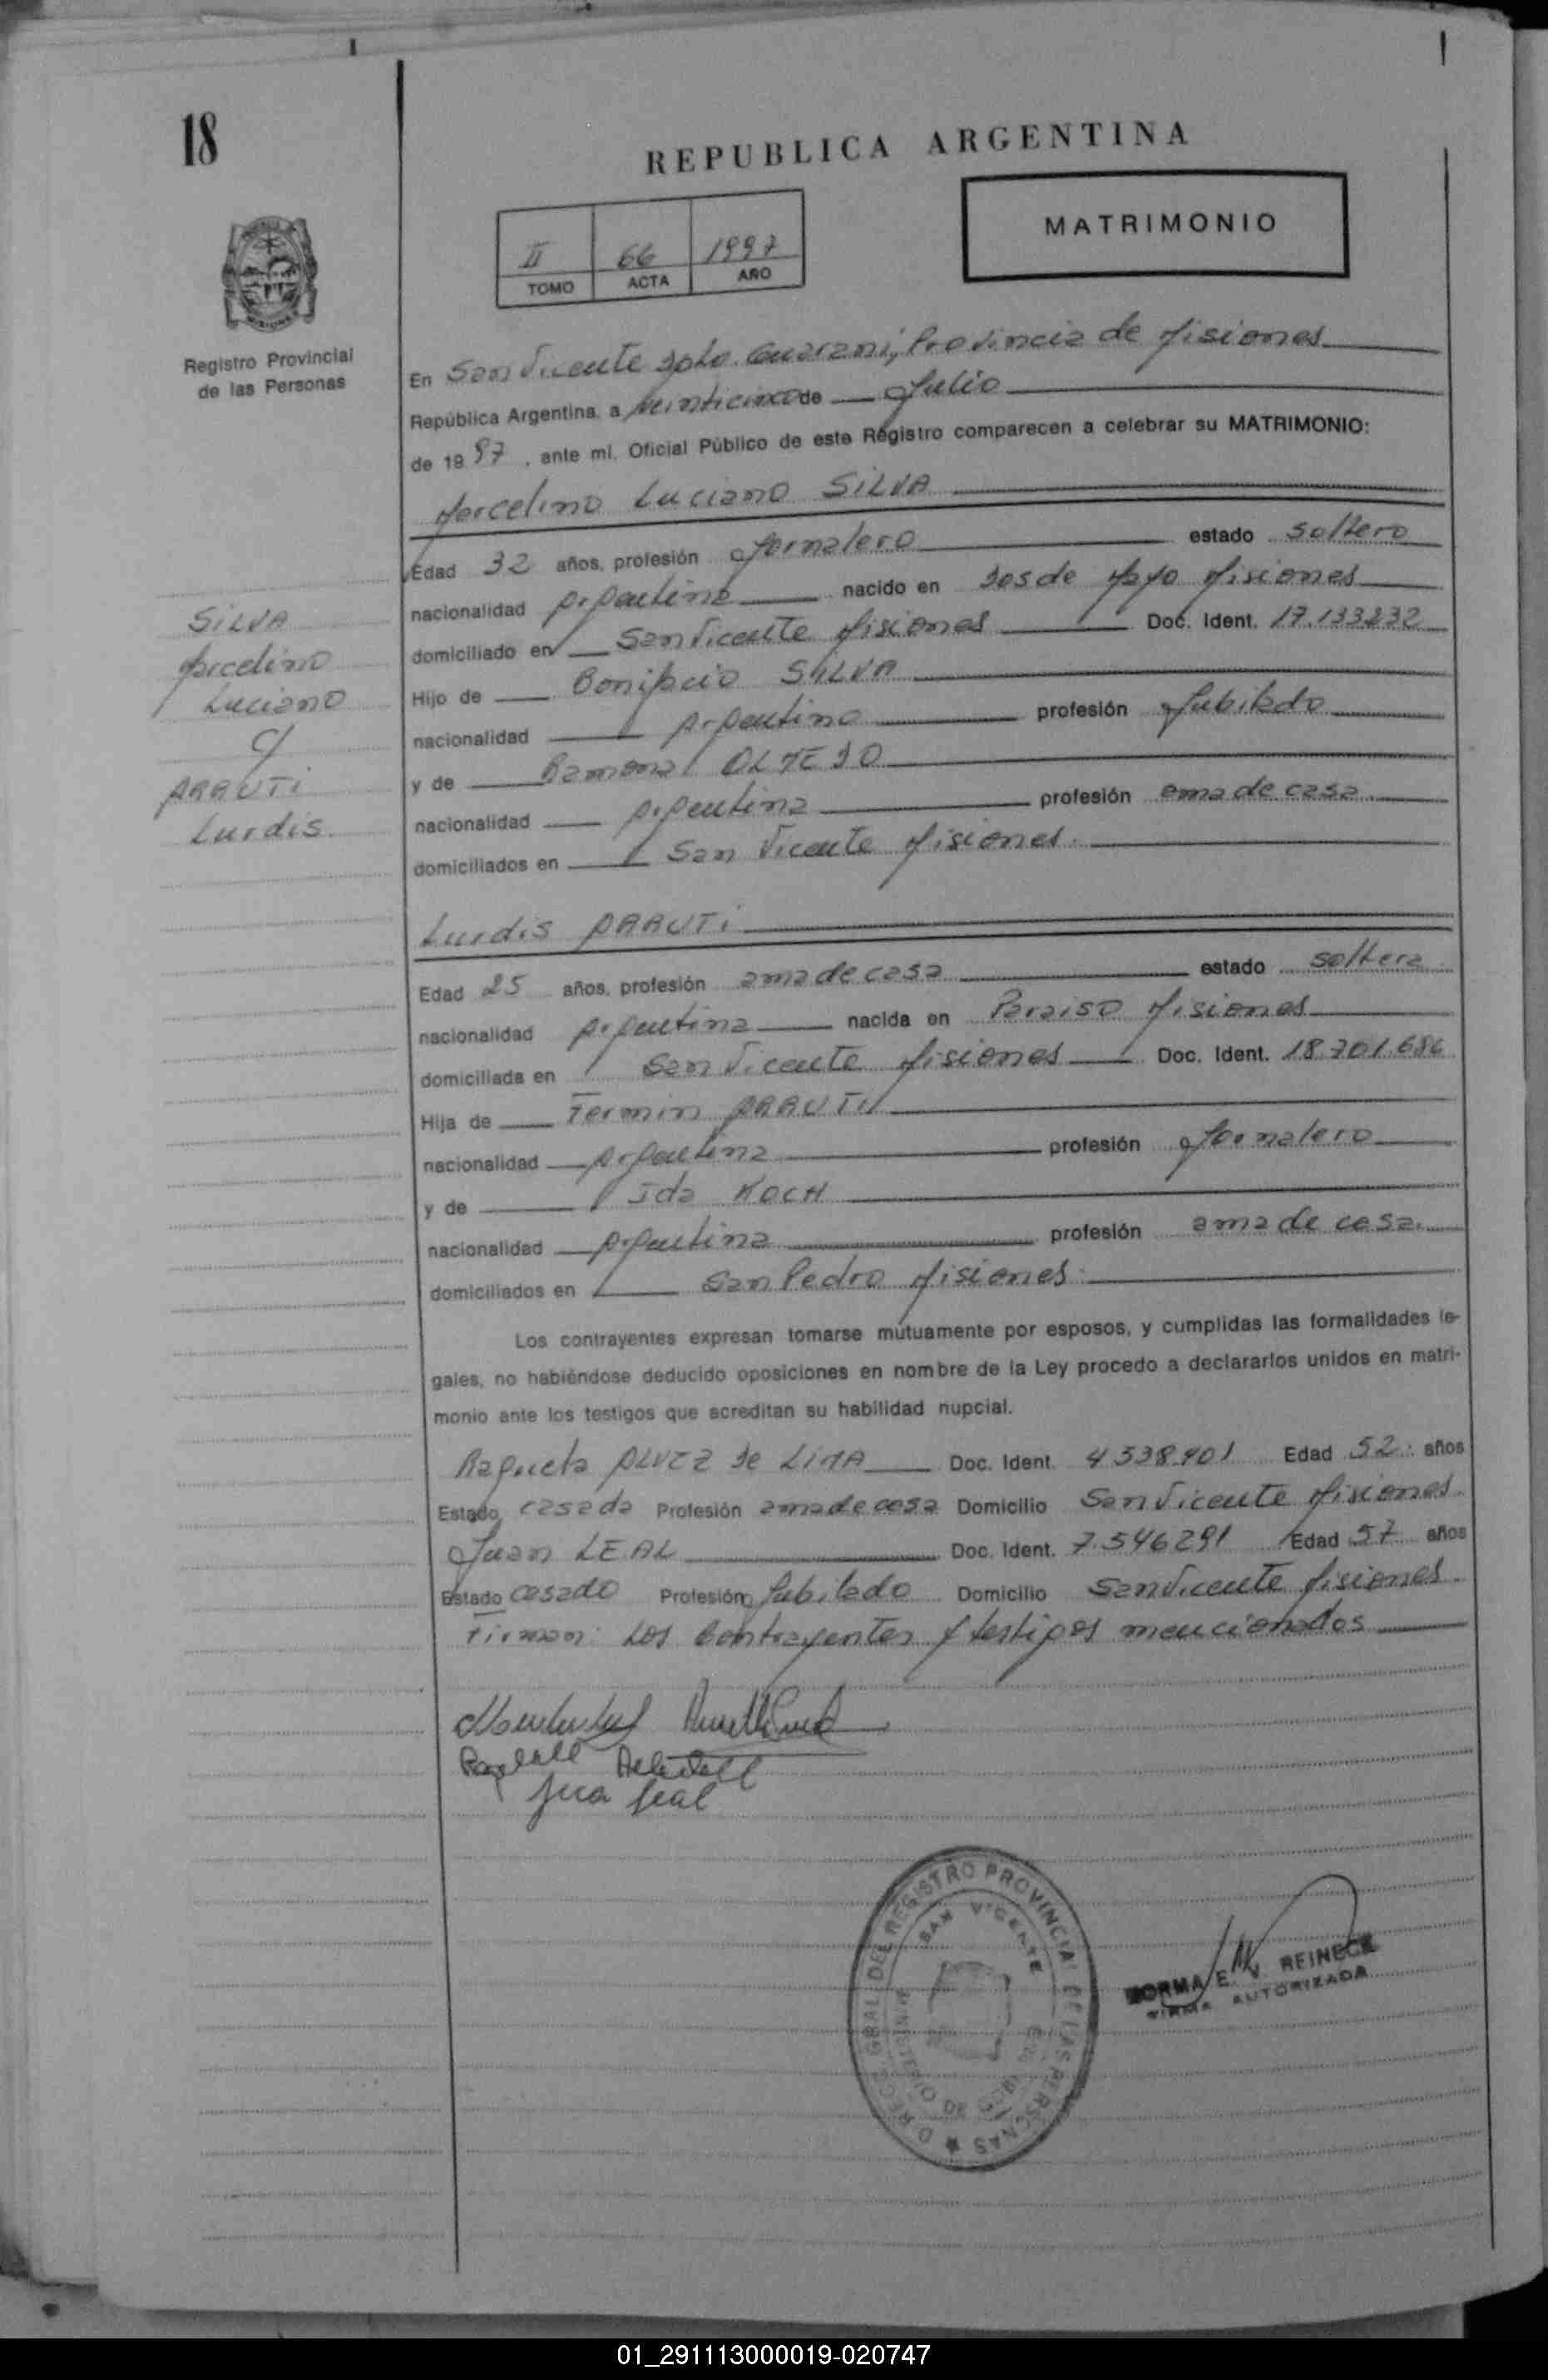 18
REPUBLICA ARGENTINA
MATRIMONIO
II 66 1997
TOMO ACTA AÑO
Registro Provincial
de las Personas
En San Vicente Dpto. Guaraní, Provincia de Misiones
República Argentina, a veinticinco de Julio
de 19 97, ante mí, Oficial Público de este Registro comparecen a celebrar su MATRIMONIO:
Marcelino Luciano SILVA
Edad 32 años, profesión Jornalero estado soltero
nacionalidad Argentina nacido en Dos de Mayo Misiones
domiciliado en San Vicente Misiones Doc. Ident. 17.133232
Hijo de Bonifacio SILVA
nacionalidad Argentino profesión Jubilado
y de Ramona
nacionalidad Argentina profesión ama de casa
domiciliados en San Vicente Misiones.
SILVA
Marcelino
Luciano
C/
ARRUTI
Lurdis.
Lurdis ARRUTI
Edad 25 años, profesión ama de casa estado soltera
nacionalidad Argentina nacida en Paraiso Misiones
domiciliada en San Vicente Misiones Doc. Ident. 18.701.686
Hija de Fermin ARRUTI
nacionalidad Argentina profesión Jornalero
y de Ida KOCH
nacionalidad Argentina profesión ama de casa.
domiciliados en San Pedro Misiones.
Los contrayentes expresan tomarse mutuamente por esposos, y cumplidas las formalidades le-
gales, no habiéndose deducido oposiciones en nombre de la Ley procedo a declararlos unidos en matri-
monio ante los testigos que acreditan su habilidad nupcial.
ALVEZ de LIMA Doc. Ident. 4538901 Edad 52. años
Estado casada Profesión ama de casa Domicilio San Vicente Misiones.
Juan LEAL Doc. Ident. 7.546291 Edad 57 años
Estado casado Profesión Jubilado Domicilio San Vicente Misiones.
Firman: Los Contrayentes y testigos mencionados
Jua Leal
DIREC. GRAL. DEL REGISTRO PROVINCIAL DE LAS PERSONAS
SAN VICENTE
NORMA E. V. REINECK
FIRMA AUTORIZADA
01_291113000019-020747